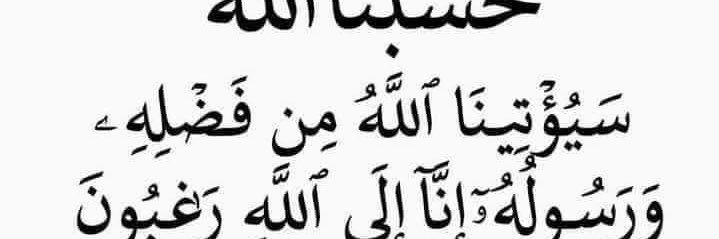 حسبنا الله
سَيُؤْتِينَا ٱللَّهُ مِن فَضْلِهِۦ
وَرَسُولُهُۥٓ إِنَّآ إِلَى ٱللَّهِ رَٰغِبُونَ